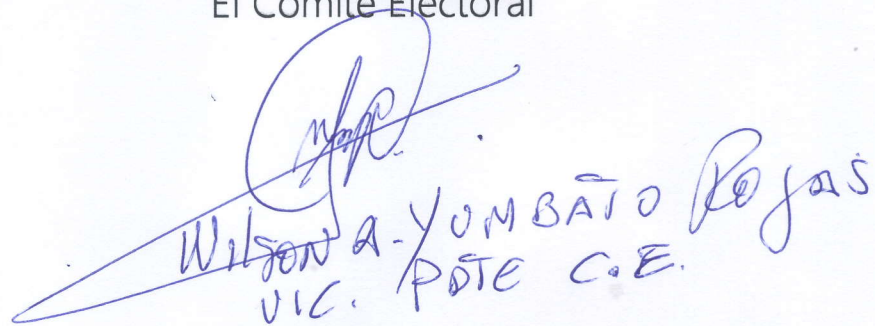 El Comité Electoral
Wilson A. YUMBATO Rojas
VIC. PDTE C.E.